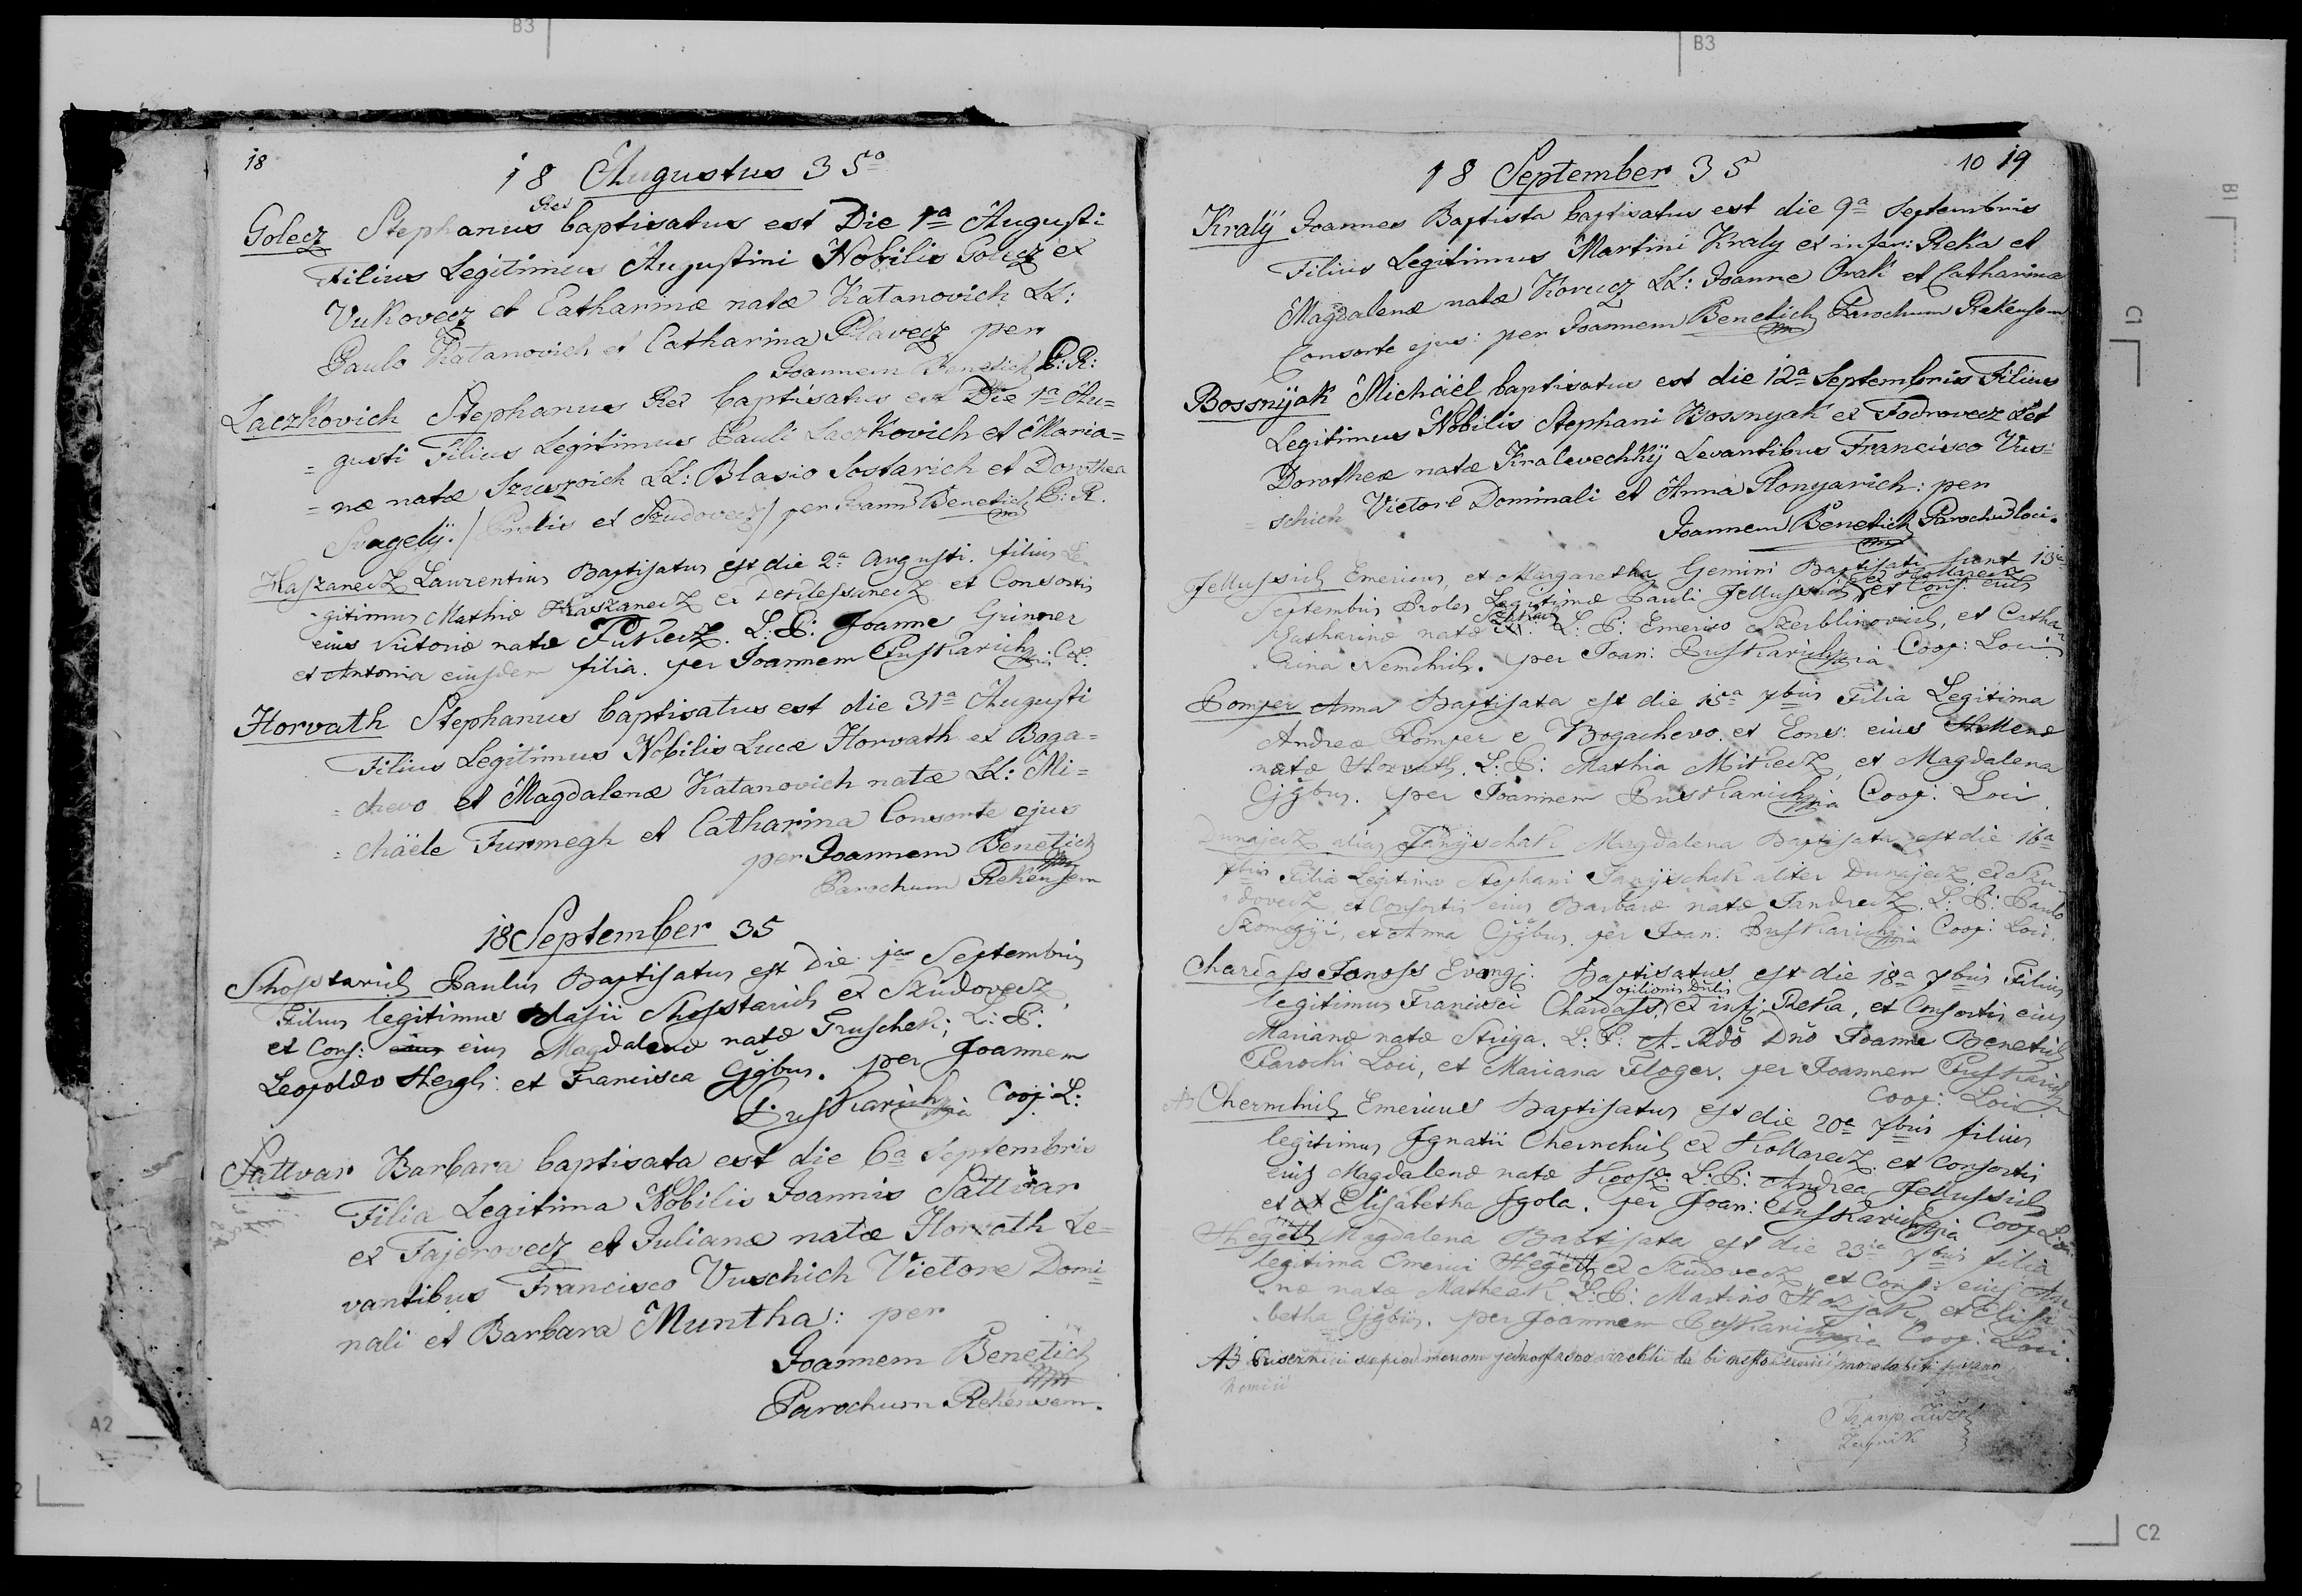 B3
B3
18
18 Augustus 35º
Rex
Golecz Stephanus baptisatus est Die 1ª Augusti
Filius Legitimus Augustini Nobilis Golecz ex
Vukovecz et Catharinæ natæ Katanovich LL:
Paulo Katanovich et Catharina Plavecz per
Joannem Benetich P: R:
Laczkovich Stephanus Rex baptisatus est Die 1ª Au=
= gusti Filius Legitimus Pauli Laczkovich et Maria=
= næ natæ LL: Blasio Sostarich et Dorothea
Svagely: / Prolis ex Szudovecz / per Joann Benetich P: R.
Haszanecz Laurentius Baptisatus est die 2ª Augusti. filius Le-
-gitimus Mathiæ Haszanecz ex et Consortis
eius Victoriæ natæ Putkecz. L: P: Joanne Grinner
et Antonia eiusdem filia. per Joannem Puskarich mpia C: L:
Horvath Stephanus baptisatus est die 31ª Augusti
Filius Legitimus Nobilis Lucæ Horvath ex Boga=
= chevo et Magdalenæ Katanovich natæ LL: Mi=
= chäele Furmegh et Catharina Consorte ejus
per Joannem Benetich
Parochum Rekensem
18 September 35
Shostarich Paulus Baptisatus est Die 1ª Septembris
Filius legitimus Blasii Shostarich ex Szudovecz,
et Cons: eius eius Magdalenæ natæ Gruschek; L: P:
Leopoldo Hergh: et Francisca Gjgbus. per Joannem
Puskarich mpia Coop: L:
Sattvar Barbara baptisata est die 6ª Septembris
Filia Legitima Nobilis Joannis Sattvar
ex Fajerovecz et Julianæ natæ Horvath Le=
vantibus Francisco Vuschich Vietore Domi=
nali et Barbara Muntha: per
Joannem Benetich
Parochum Rekensem.
10 19
18 September 35
Kralÿ Joannes Baptista baptisatus est die 9ª Septembris
Filius Legitimus Martini Kraly ex infer: Reka et
Magdalenæ natæ Korucz LL: Joanne Orak et Catharina
Consorte ejus: per Joannem Benetich Parochum Rekensem
Bossnÿak Michäel baptisatus est die 12ª Septembris Filius
Legitimus Nobilis Stephani Bossnyak ex Fodrovecz et
Dorotheæ natæ Kralevechkÿ Levantibus Francisco Vus=
= schich Vietore Dominali et Anna Ronyarich: per
Joannem Benetich Parochu loci.
Jellussich Emericus, et Margaretha Gemini Baptisati sunt 13ª
ex Kollarecz
Septembris Proles Legitimæ Pauli Jellussich et Cons: eius
Catharinæ natæ L: P: Emerico Szerblinovich, et Catha-
rina Nemchich. per Joan: Puskarich mpia Coop: Loci
Pomper Anna Baptisata est die 15ª 7bris Filia Legitima
Andreæ Pomper e Bogachevo. et Cons: eius Hellenæ
natæ Horvath. L: P: Mathia Mikecz, et Magdalena
Gjgbus. per Joannem Puskarich mpia Coop: Loci.
Dunajecz alias Janÿschak Magdalena Baptisata est die 16ª
7bris Filia Legitima Stephani Janÿschak aliter Dunajecz, ex Szu-
-dovecz, et Consortis eius Barbaræ natæ Jandrecz. L: P: Paulo
Szomogyi, et Anna Gjgbus. per Joan: Puskarich mpia Coop: Loci.
Chardass Janoss Evang: Baptisatus est die 18ª 7bris Filius
opilionis Dnlis
legitimus Francisci Chardass, ex inf: Reka, et Consortis eius
Marianæ natæ Striga. L: P: A. Rdo Dno Joanne Benetich
Parochi Loci, et Mariana Floger. per Joannem Puskarich
Coop: Loci
Chernchich Emericus Baptisatus est die 20ª 7bris filius
legitimus Ignatii Chernchich ex Kollarecz. et Consortis
eius Magdalenæ natæ L: P: Andrea Jellussich
et Elisabetha Jgola. per Joan: Puskarich mpia Coop: Loci
Hegett Magdalena Babtisata est die 23ia 7bris filia
legitima Emerici Hegett ex Szudovecz, et Cons: eius An-
-næ natæ Matheak. L: P: Martino Horjak, et Elisa-
-betha Gjgbus. per Joannem Puskarich mpia Coop: Loci.
da bi
Franjo
B1
C1
A2
C2